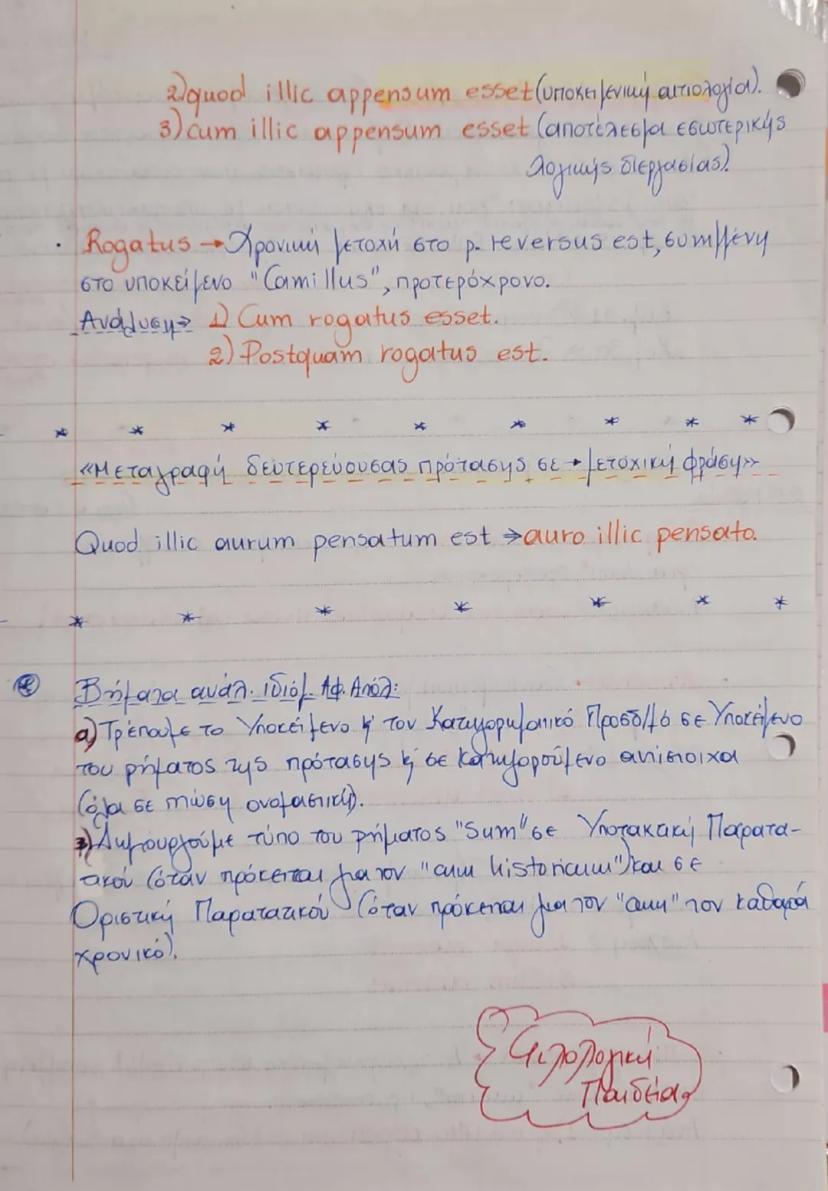 2) quod illic appensum esset (υποκειμενική αιτιολογία).
3) cum illic appensum esset (αποτέλεσμα εσωτερικής
λογικής διεργασίας).
· Rogatus → Χρονική μετοχή στο ρ. reversus est, συνημμένη
στο υποκείμενο "Camillus", προτερόχρονο.
Ανάλυση → 1) Cum rogatus esset.
2) Postquam rogatus est.
* * * * * * * * *
«Μεταγραφή δευτερεύουσας πρότασης σε → μετοχική φράση»
Quod illic aurum pensatum est → auro illic pensato.
* * * * * * *
Βήματα ανάλ. ιδιόμ. Αφ. Απόλ:
α) Τρέπουμε το Υποκείμενο & τον Κατηγορηματικό Προσδ/μό σε Υποκείμενο
του ρήματος της πρότασης & σε κατηγορούμενο αντίστοιχα
(όλα σε πτώση ονομαστική).
Δημιουργούμε τύπο του ρήματος "Sum" σε Υποτακτική Παρατα-
τικού (όταν πρόκειται για τον "cum historicum") και σε
Οριστική Παρατατικού (όταν πρόκειται για τον "cum" τον καθαρά
χρονικό).
Φιλολογική
Παιδεία